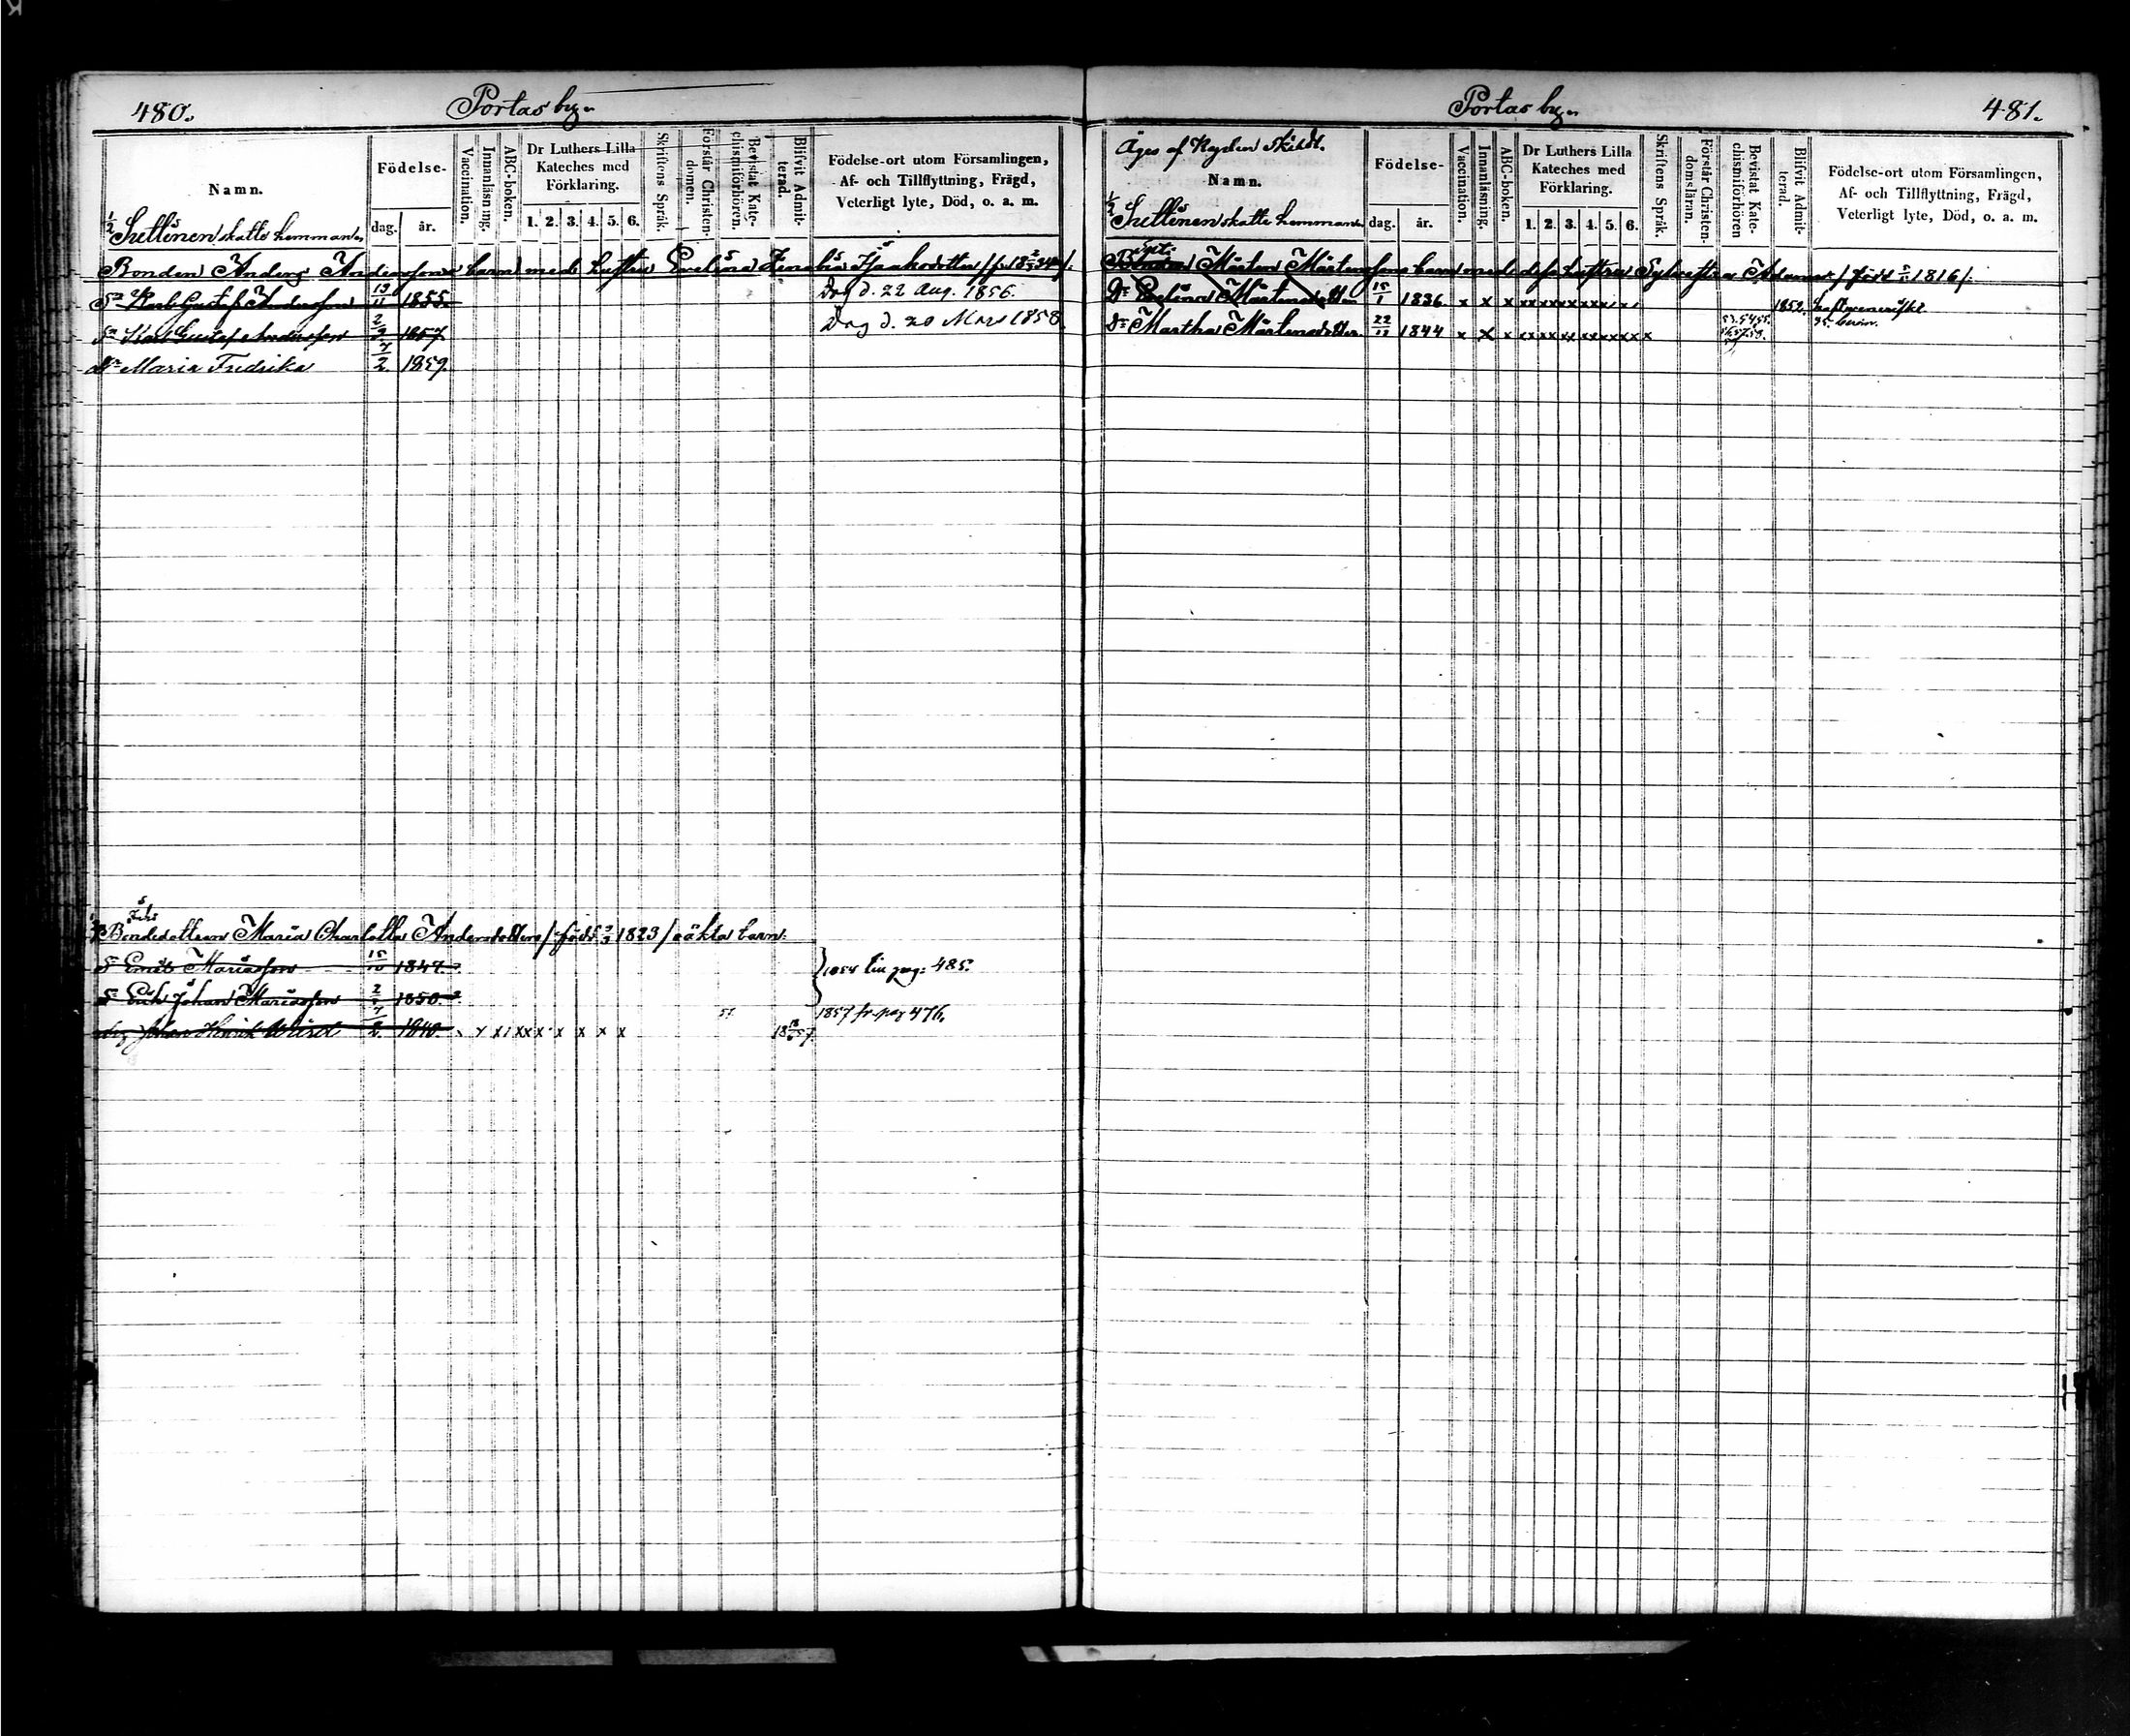 480.
Portas by.
Namn.
Födelse-
dag. år.
Vaccination.
Innanläsning.
ABC-boken.
Dr Luthers Lilla
Kateches med
Förklaring.
1. 2. 3. 4. 5. 6.
Skriftens Språk.
Förstår Christen-
domen.
Bevistat Kate-
chismiförhören.
Blifvit Admit-
terad.
Födelse-ort utom Församlingen,
Af- och Tillflyttning, Frägd,
Veterligt lyte, Död, o. a. m.
1/2 skatte hemman
Bonden Anders Anderssons barn med hustru Evelina Zenobia Isaksdotter
Sn Karl Gustaf Andersson 13/11 1855.
Dog d. 22 Aug. 1856.
Sn Karl Gustaf Andersson 1857.
Dog d. 20 Mars 1858
Dr Maria Fredrika 7/2 1859.
Bondedottren Maria Charlotta Andersdotters / född 1823 / oäkta barn:
Sn Emil Mariasson 15/10 1847.
1854 till pag: 485.
Sn Erik Johan Mariasson 1850.
1857 fr. pag 476.
Johan Henrik 7/2 1840. x x x x x x x x x
57.
481.
Portas by.
Äges af
Namn.
Födelse-
dag. år.
Vaccination.
Innanläsning.
ABC-boken.
Dr Luthers Lilla
Kateches med
Förklaring.
1. 2. 3. 4. 5. 6.
Skriftens Språk.
Förstår Christen-
domsläran.
Bevistat Kate-
chismiförhören
Blifvit Admit-
terad.
Födelse-ort utom Församlingen,
Af- och Tillflyttning, Frägd,
Veterligt lyte, Död, o. a. m.
1/2 skatte hemman.
Bonden Mårten Mårtenssons barn med dess hustru Sylvestra född 1816/.
Dr Evelina Mårtensdotter 15/1 1836. x x x xxxxxxxxx
1852.
Dr Martha Mårtensdotter. 22/11 1844 x x x xxxxxxxxxx
53.54.55.